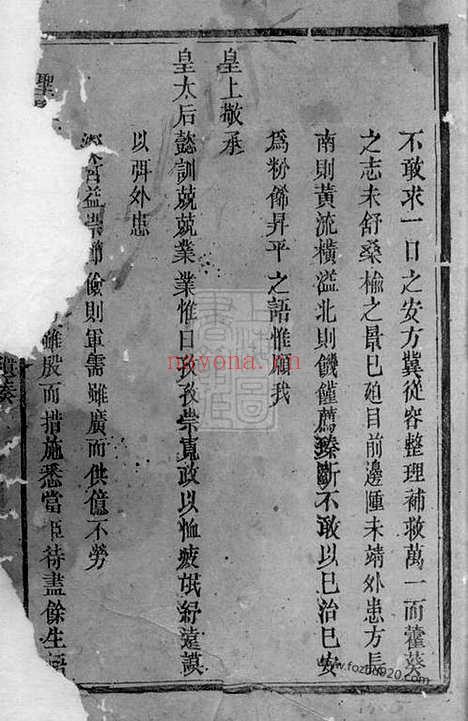 不敢求一日之安方冀從容整理補救萬一而藿葵
之志未舒桑榆之景已廹目前邊陲未靖外患方長
南則黃流橫溢北則饑饉薦臻斷不敢以已治已安
為粉飾昇平之語惟願我
皇上敬承
皇太后懿訓兢兢業業惟日孜孜崇寬政以恤疲氓紓遠謨
以弭外患
益崇節儉則軍需雖廣而供億不勞
雖殷而措施悉當臣待盡餘生
聖
遺奏
nayona.cn
www.fozhu920.com